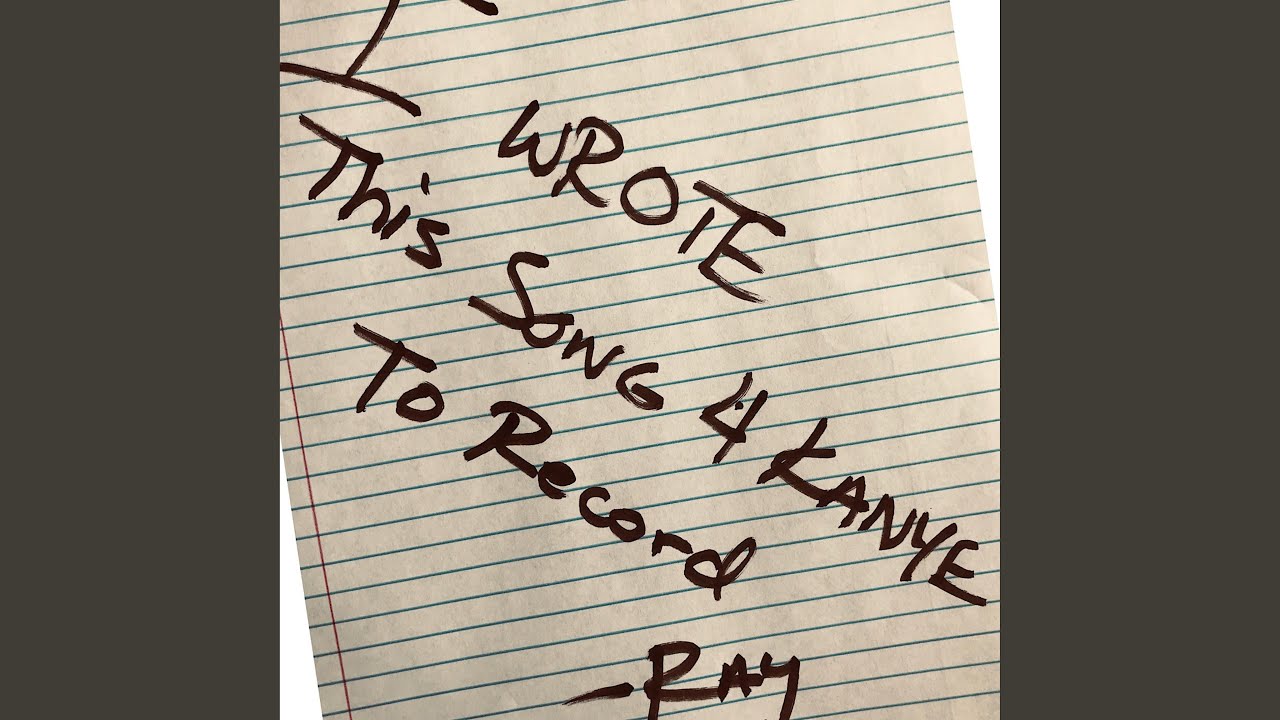 I WROTE
This SONG 4 KANYE
To Record
-RAY